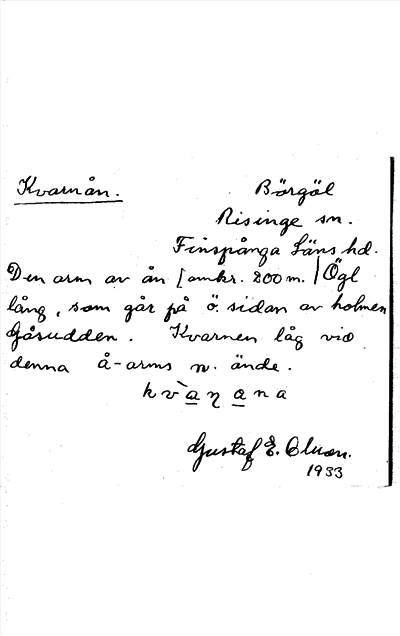 Kvarnån.
Börgöl
Risinge sn.
Finspånga Läns hd.
Den arm av ån [omkr. 200 m. | Ögl
lång, som går på ö. sidan av holmen
Gåsudden. Kvarnen låg vid
denna å-arms n. ände.
Gustaf E. Olsson.
1933